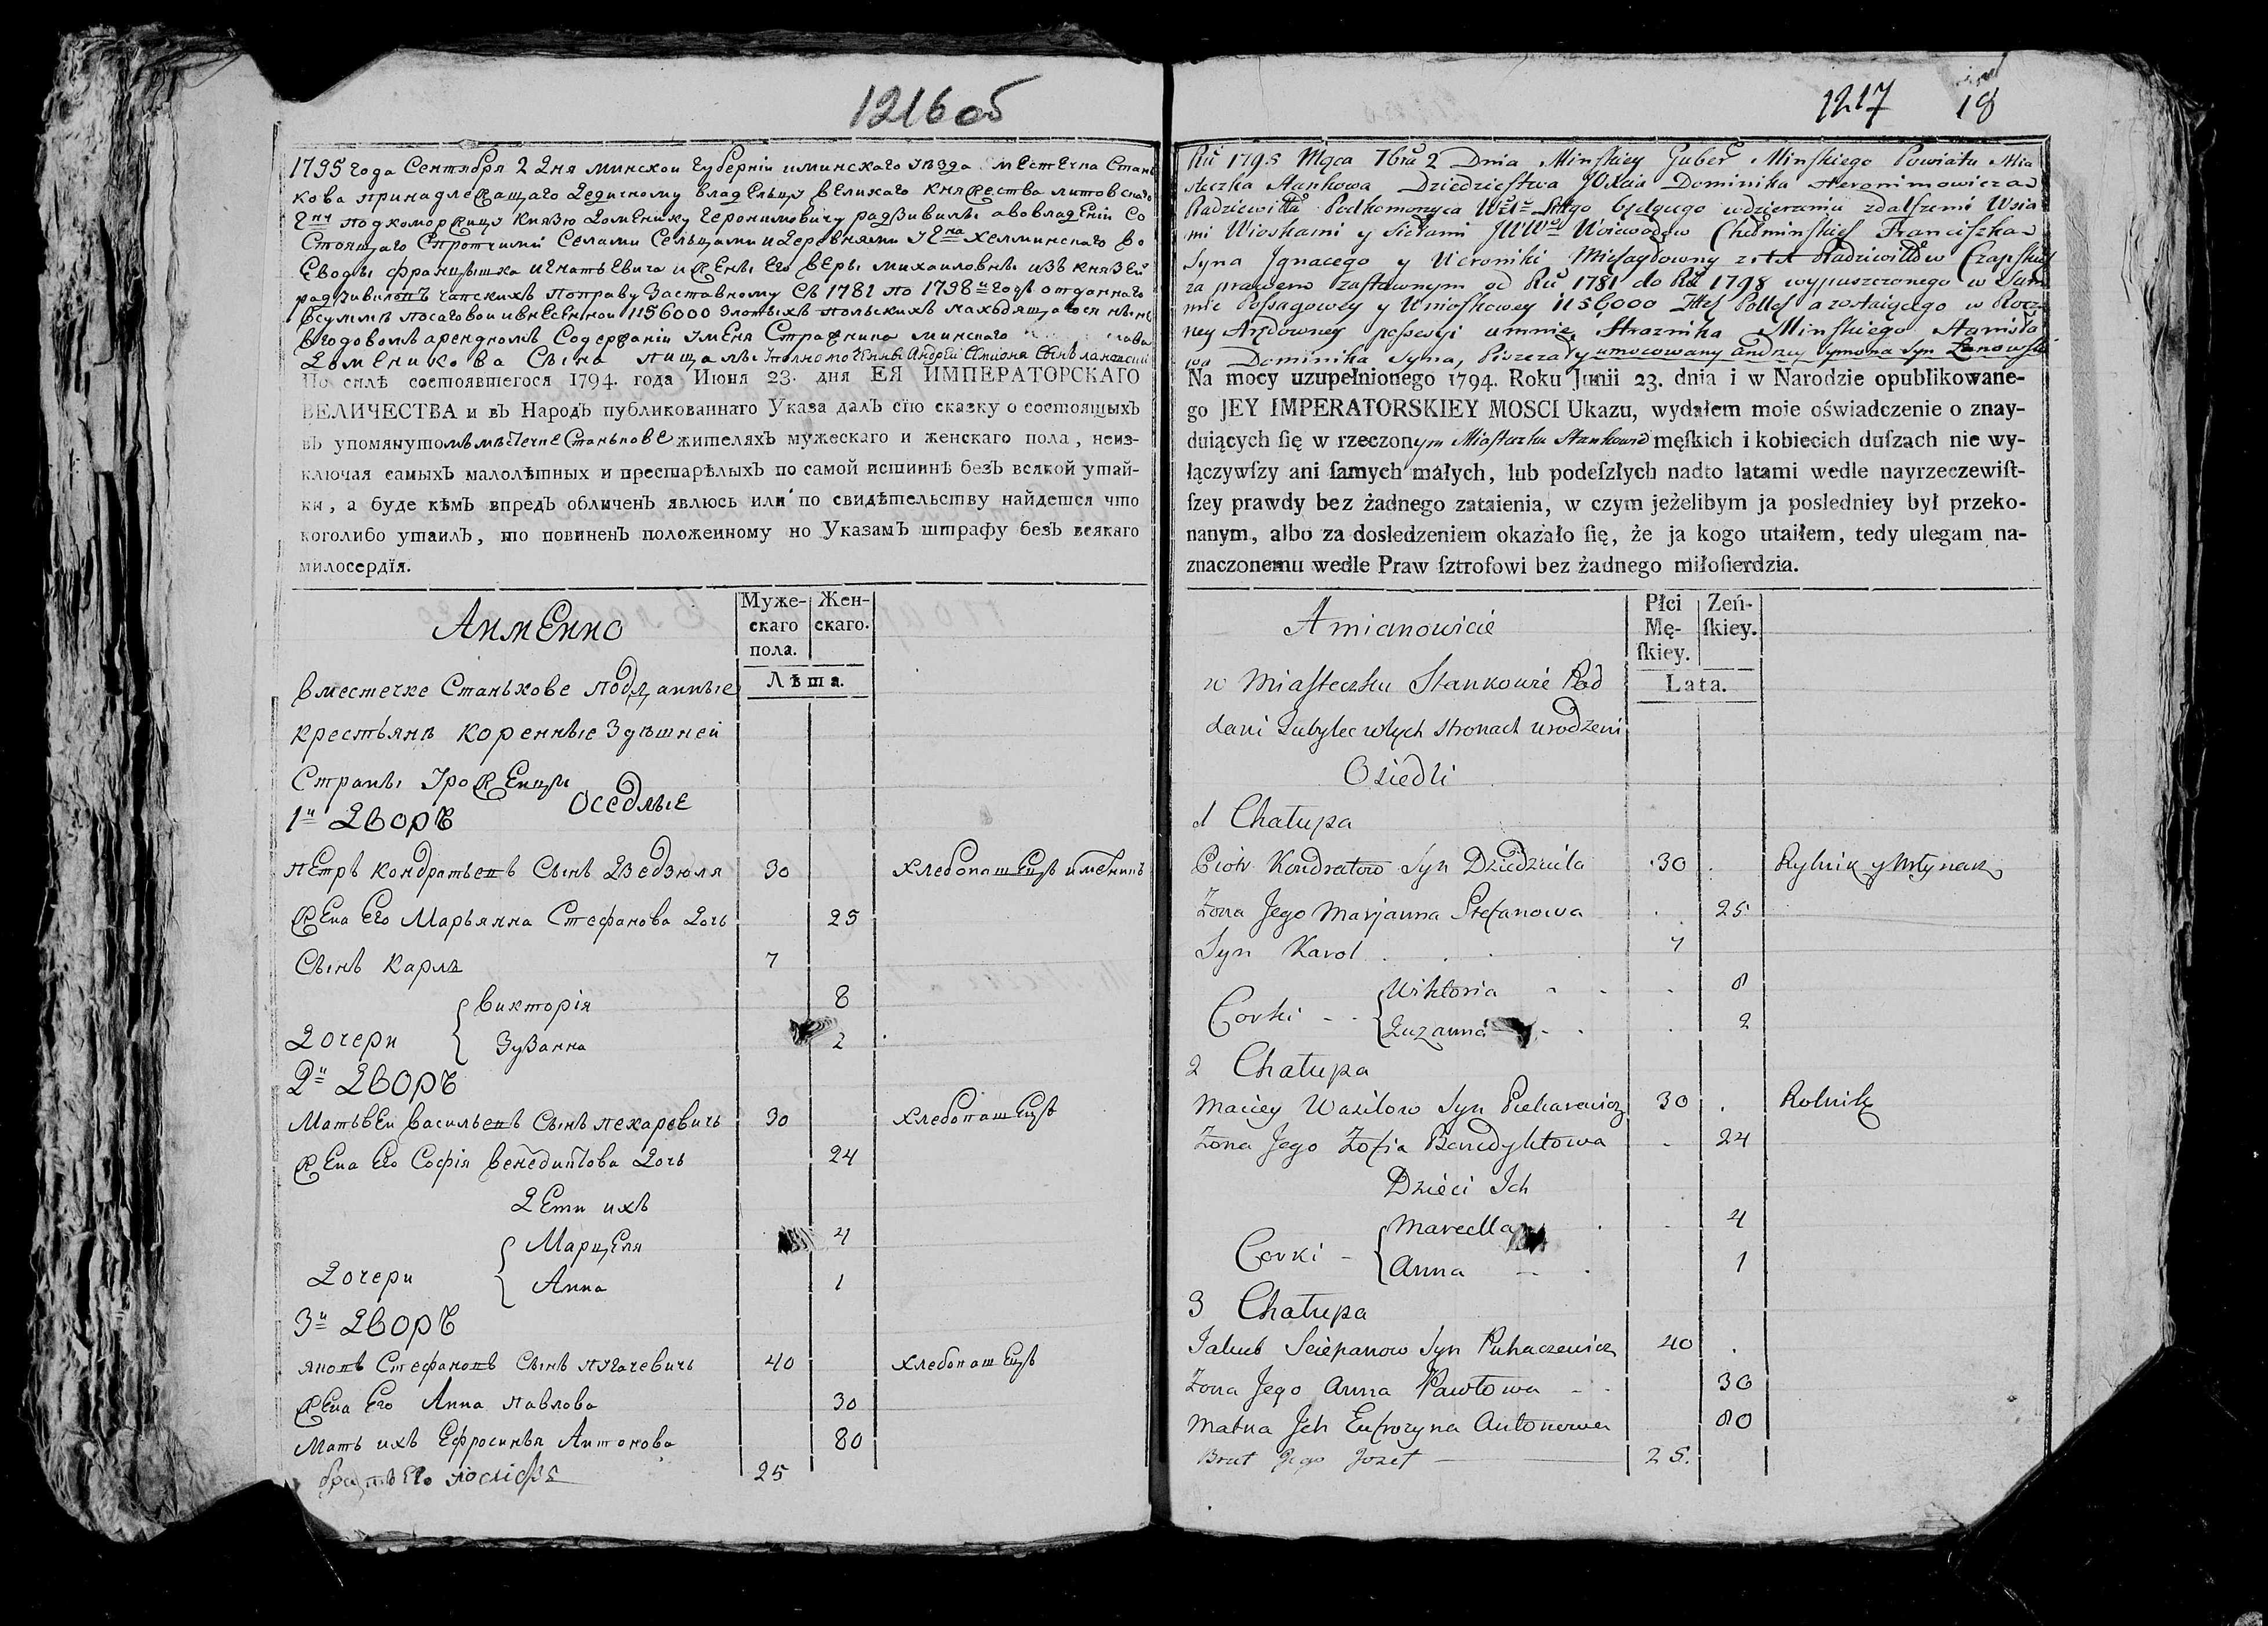 1216 об
1795 года Сентября 2 дня минской губернїи иминскаго уезда местечка Стань
кова принадлежащаго дедичному владельцу великаго княжества литовскаго
подкоморжицу князю доменику Геронимовичу радзивилъ авовладенїи со
Стоящаго Спротчими Селами Сельцами идеревнями хелминскаго во
еводы францышка игнатьевича ижены его веры михаиловны изъ князей
радзивиловъ чапскихъ поправу заставному съ 1781 по 1798й годъ отданнаго
всумме посаговой ивнесенной 1156000 злотыхъ польскихъ находящагося ныне
вгодовомъ арендномъ Содержанїи уменя Стражника минскаго
доменикова Сына пищалы полномоченны Андрей Семиона Сынъ лановский
По силѣ состоявшегося 1794. года Июня 23. дня ЕЯ ИМПЕРАТОРСКАГО
ВЕЛИЧЕСТВА и въ Народъ публикованнаго Указа далъ сїю сказку о состоящыхъ
въ упомянутомъ местечке Станькове жителяхъ мужескаго и женскаго пола, неиз-
ключая самыхъ малолѣтныхъ и престарѣлыхъ по самой истиннѣ безъ всякой утай-
ки, а буде кѣмъ впредь обличенъ явлюсь или по свидѣтельству найдется что
коголибо утаилъ, то повиненъ положенному по Указамъ штрафу безъ всякаго
милосердїя.
Аименно
Муже-
скаго
пола.
Жен-
скаго.
Лѣта.
вместечке Станькове подданные
крестьяне коренные здешней
Страны уроженцы
оседлые
1й дворъ
петръ кондратьевъ Сынъ дзедзюля 30 хлебопашецъ имелникъ
жена его Марьянна Стефанова дочь 25
Сынъ карлъ 7
дочери { викторїя 8
Зузанна 2
2й дворъ
Матьвеи васильевъ Сынъ пекаревичъ 30 хлебопашецъ
жена его Софїя венедиктова дочь 24
дети ихъ
дочери { Марцеля 4
Анна 1
3й дворъ
яковъ Стефановъ Сынъ пугачевичъ 40 хлебопашецъ
жена его Анна павлова 30
мать ихъ Ефросинья Антонова 80
братъ его иосифъ 25
1217 18
Ru 1795 Mąca 7bra 2 Dnia Minskiey Guber Minskiego Powiatu Mia
steczka Stankowa Dziedzictwa JOXcia Dominika Heronimowicza
Radziewiłła Podkomorzyca będącego udzierzeniu zdalszemi Wsia
mi Wioskami y Siełami Woiewodow Chełminskich Franciszka
Syna Ignacego y Weroniki Michayłowny Radziwiłłow Czapskich
za prawem zastawnym od Ru 1781 do Ru 1798 wypuszczonego w Sum
mie Possagowey y Wnioskowey 1156000 a zostaiącego w Rocz
ney Arędowney possessyi umnie Straznika Minskiego Stanisła
wa Dominika Syna, Piszczały umocowany Andrzey Symona Syn Łanowski
Na mocy uzupełnionego 1794. Roku Junii 23. dnia i w Narodzie opublikowane-
go JEY IMPERATORSKIEY MOSCI Ukazu, wydałem moie oświadczenie o znay-
duiących ſię w rzeczonym Miasteczku Stankowie męſkich i kobiecich duſzach nie wy-
łączywſzy ani ſamych małych, lub podeſzłych nadto latami wedle nayrzeczewiſt-
ſzey prawdy bez żadnego zataienia, w czym jeżelibym ja posledniey był przeko-
nanym, albo za dosledzeniem okazało ſię, że ja kogo utaiłem, tedy ulegam na-
znaczonemu wedle Praw ſztrofowi bez żadnego miłoſierdzia.
Amianowicie
Płci
Mę-
ſkiey.
Zeń-
ſkiey.
Lata.
w Miasteczku Stankowie Pod
dani Zubylec wtych stronach urodzeni
Osiedli
1 Chałupa
Piotr Kondratow Syn Dziedziula 30 Rylnik y Młynarz
Zona Jego Marjanna Stefanowa 25
Syn Karol 7
Corki { Wiktoria 8
Zuzanna 2
2 Chałupa
Maciey Wasilow Syn Piekarewicz 30 Rolnik
Zona Jego Zofia Benedyktowa 24
Dzieci Ich
Corki { Marcella 4
Anna 1
3 Chałupa
Jakub Sciepanow Syn Puhaczewicz 40
Zona Jego Anna Pawłowa 30
Matka Ich Eufrozyna Antonowa 80
Brat Jego Jozef 25.